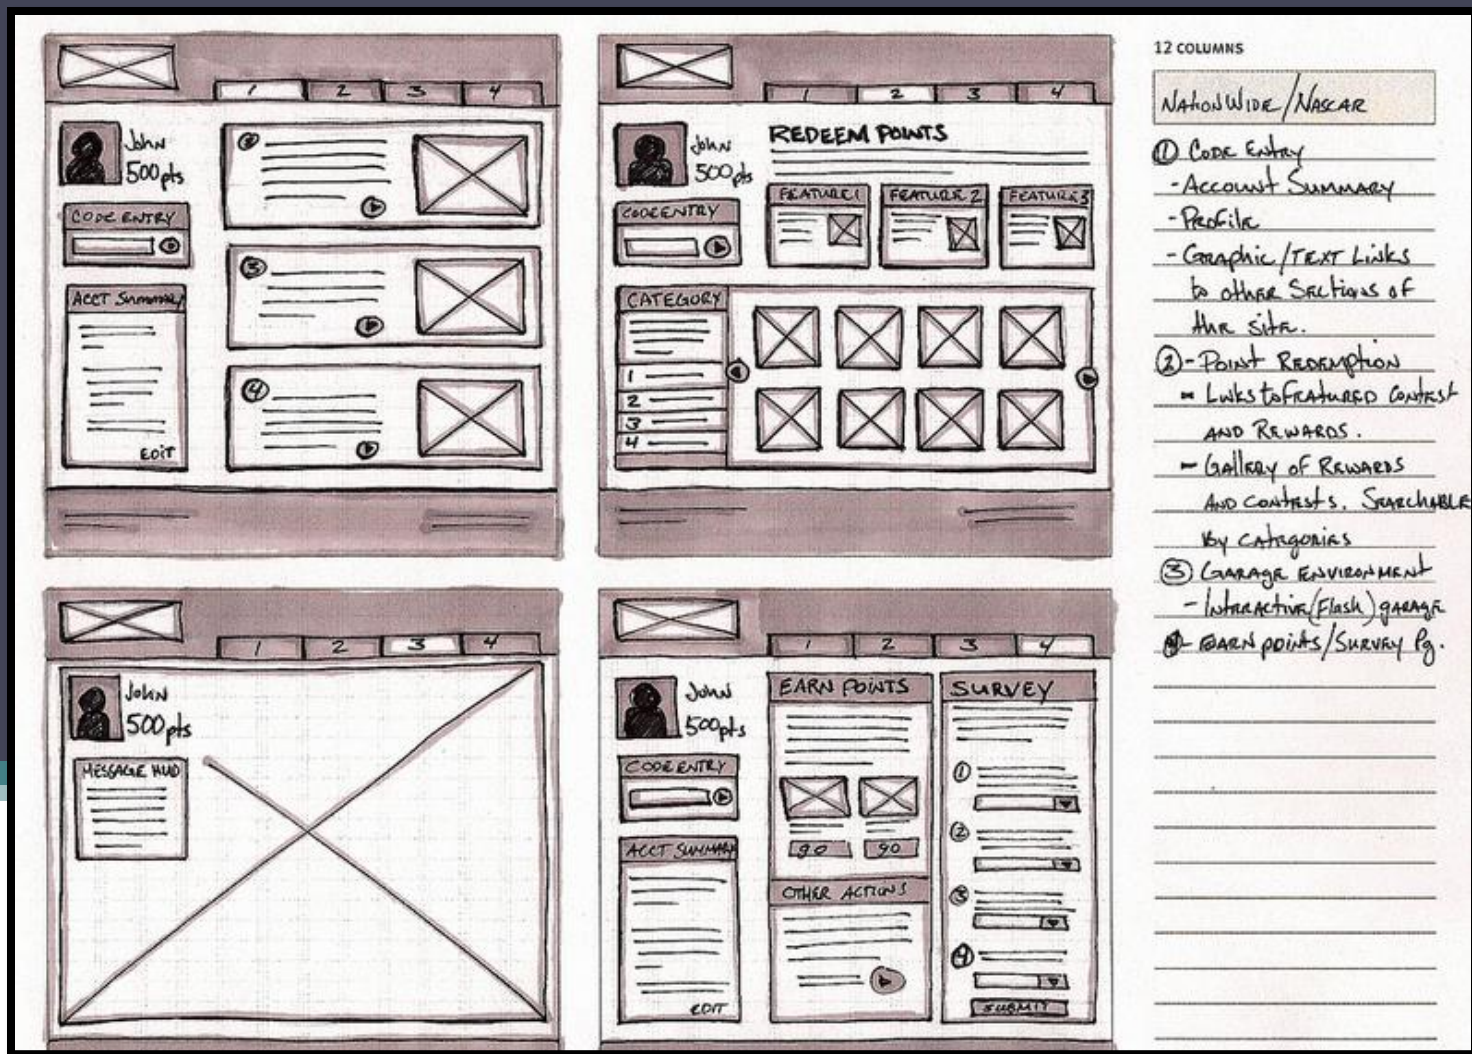 1 2 3 4
John
500pts
CODE ENTRY
ACCT SUMMARY
EDIT
2
3
4
1 2 3 4
John
500pts
CODE ENTRY
REDEEM POINTS
FEATURE 1 FEATURE 2 FEATURE 3
CATEGORY
1
2
3
4
1 2 3 4
John
500pts
MESSAGE HUD
1 2 3 4
John
500pts
CODE ENTRY
ACCT SUMMARY
EDIT
EARN POINTS
go go
OTHER ACTIONS
SURVEY
1
2
3
4
SUBMIT
12 COLUMNS
NATIONWIDE/NASCAR
① CODE ENTRY
- ACCOUNT SUMMARY
- PROFILE
- GRAPHIC/TEXT LINKS
to other Sections of
the site.
② - POINT REDEMPTION
- LINKS to FEATURED CONTEST
AND REWARDS.
- Gallery of REWARDS
AND CONTESTS. SEARCHABLE
by CATEGORIES
③ GARAGE ENVIRONMENT
- INTERACTIVE (Flash) GARAGE
④ - EARN POINTS/SURVEY Pg.